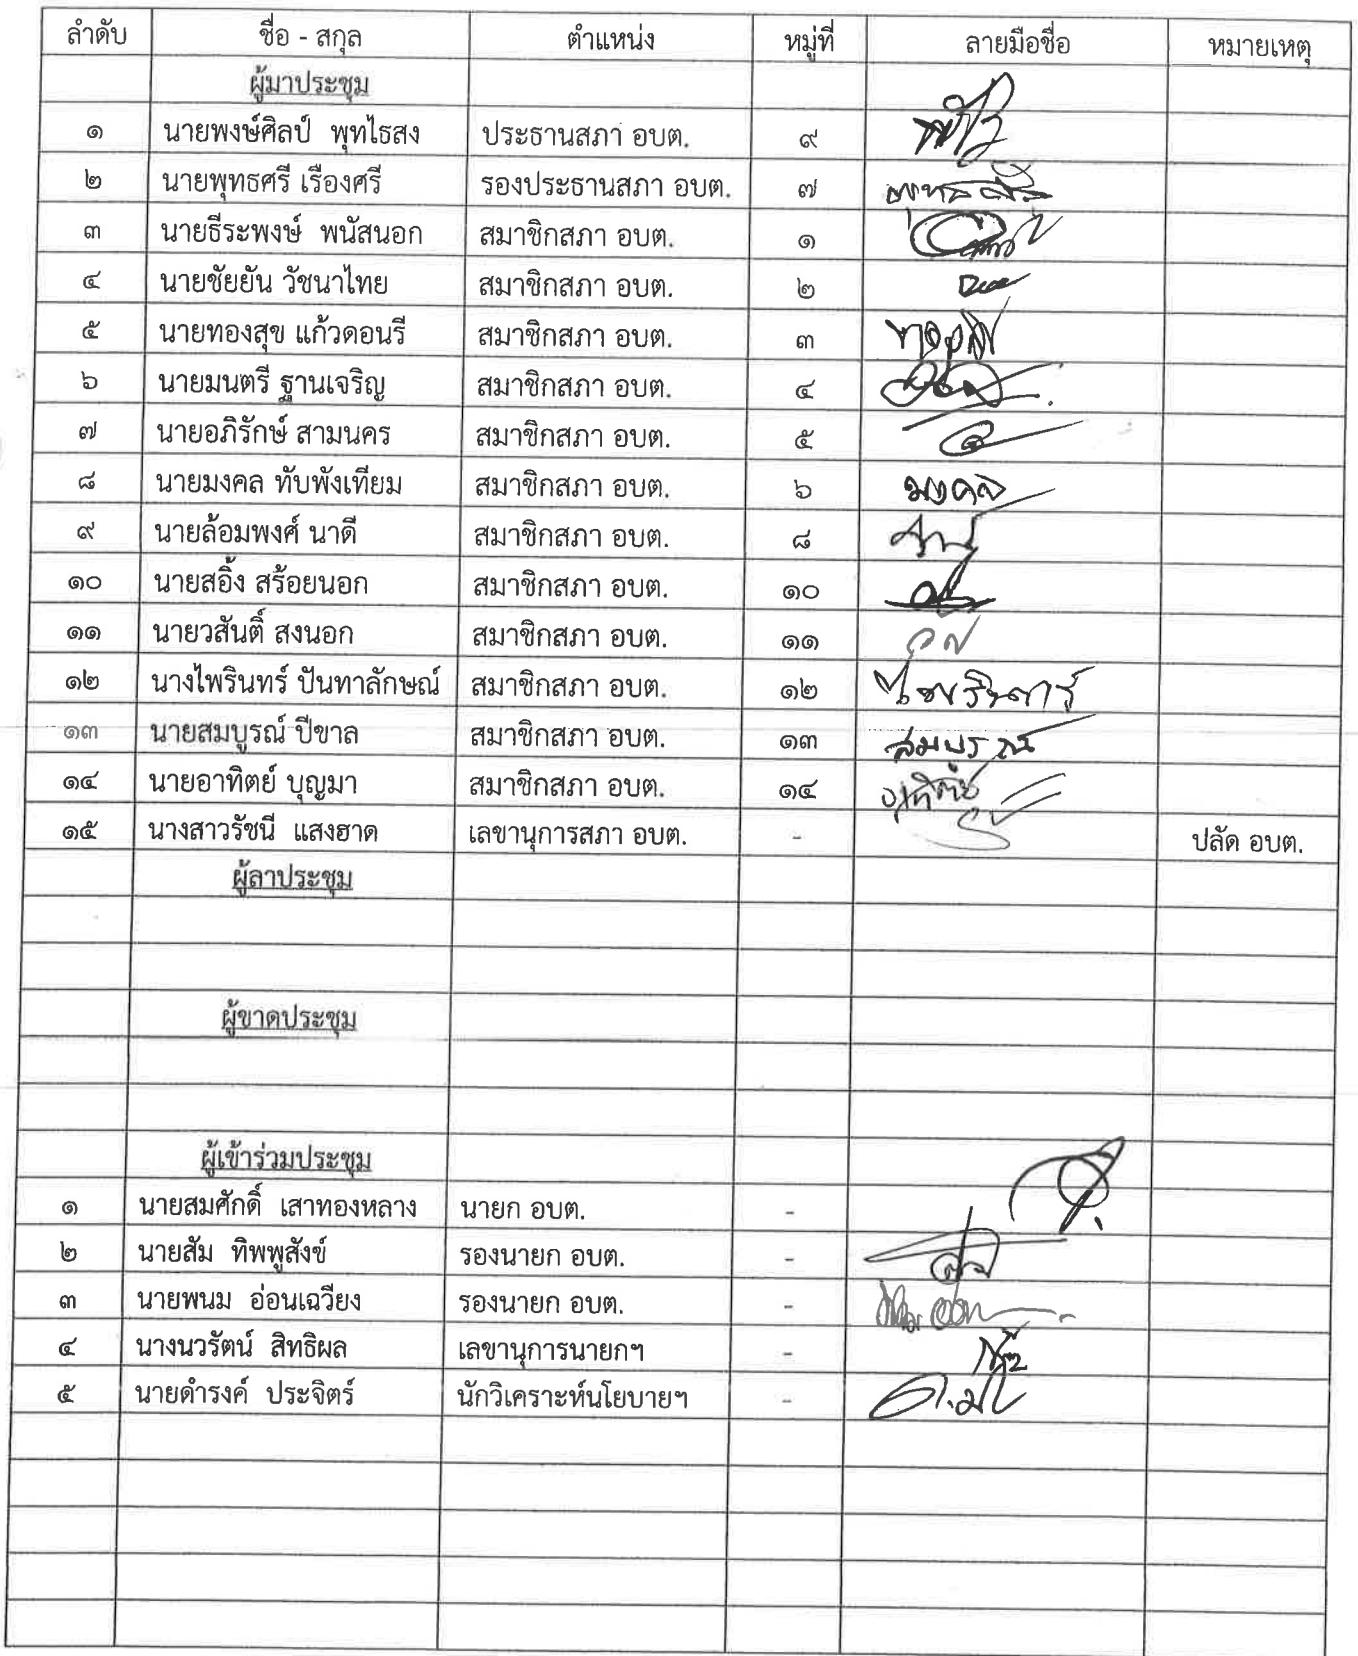 ลำดับ ชื่อ - สกุล ตำแหน่ง หมู่ที่ ลายมือชื่อ หมายเหตุ
ผู้มาประชุม
๑ นายพงษ์ศิลป์ พุทไธสง ประธานสภา อบต. ๙
๒ นายพุทธศรี เรืองศรี รองประธานสภา อบต. ๗
๓ นายธีระพงษ์ พนัสนอก สมาชิกสภา อบต. ๑
๔ นายชัยยัน วัชนาไทย สมาชิกสภา อบต. ๒
๕ นายทองสุข แก้วดอนรี สมาชิกสภา อบต. ๓
๖ นายมนตรี ฐานเจริญ สมาชิกสภา อบต. ๔
๗ นายอภิรักษ์ สามนคร สมาชิกสภา อบต. ๕
๘ นายมงคล ทับพังเทียม สมาชิกสภา อบต. ๖ มงคล
๙ นายล้อมพงศ์ นาดี สมาชิกสภา อบต. ๘
๑๐ นายสอิ้ง สร้อยนอก สมาชิกสภา อบต. ๑๐
๑๑ นายวสันติ์ สงนอก สมาชิกสภา อบต. ๑๑
๑๒ นางไพรินทร์ ปันทาลักษณ์ สมาชิกสภา อบต. ๑๒
๑๓ นายสมบูรณ์ ปีขาล สมาชิกสภา อบต. ๑๓ สมบูรณ์
๑๔ นายอาทิตย์ บุญมา สมาชิกสภา อบต. ๑๔ อาทิตย์
๑๕ นางสาวรัชนี แสงฮาด เลขานุการสภา อบต. - ปลัด อบต.
ผู้ลาประชุม
ผู้ขาดประชุม
ผู้เข้าร่วมประชุม
๑ นายสมศักดิ์ เสาทองหลาง นายก อบต. -
๒ นายสัม ทิพพูสังข์ รองนายก อบต. -
๓ นายพนม อ่อนเฉวียง รองนายก อบต. -
๔ นางนวรัตน์ สิทธิผล เลขานุการนายกฯ -
๕ นายดำรงค์ ประจิตร์ นักวิเคราะห์นโยบายฯ -